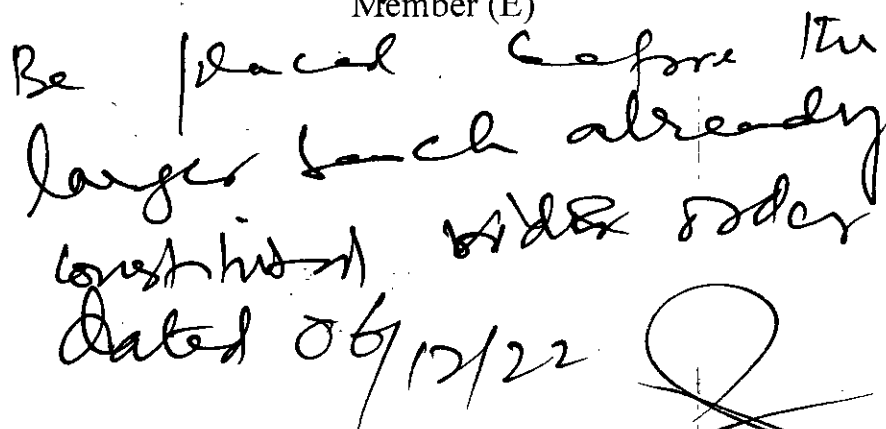 Member (E)
Be placed before the
larger bench already
constituted vide order
dated 06/12/22